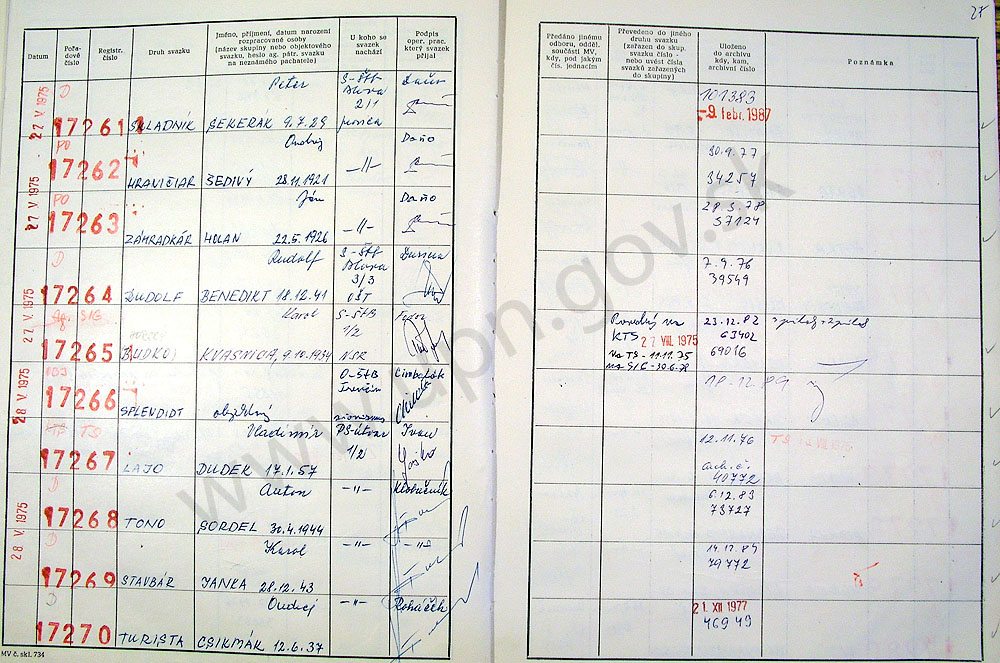 27
Datum
Pořa-
dové
číslo
Registr.
číslo
Druh svazku
Jméno, příjmení, datum narození
rozpracované osoby
(název skupiny nebo objektového
svazku, heslo ag. pátr. svazku
na neznámého pachatele)
U koho se
svazek
nachází
Podpis
oper. prac.
který svazek
přijal
Předáno jinému
odboru, odděl.
součásti MV,
kdy, pod jakým
čís. jednacím
Převedeno do jiného
druhu svazku
(zařazen do skup.
svazku číslo -
nebo uvést čísla
svazků zařazených
do skupiny)
Uloženo
do archivu
kdy, kam,
archivní číslo
Poznámka
27 V 1975
D
17261
SKLADNÍK
Peter
SEKERÁK 9.7.29
S-ŠtB
2/1
101383
-9. febr. 1987
PO
17262
HRANIČIAR
Ondrej
ŠEDIVÝ 28.11.1921
-//-
Daňo
30.9.77
34257
27 V 1975
PO
17263
ZÁHRADKÁR
Ján
HOLAN 22.5.1926
-//-
Daňo
28.3.78
57124
D
17264
RUDOLF
Rudolf
BENEDIKT 18.12.41
S-ŠtB
3/3
OŠT
7.9.76
39549
27 V 1975
17265
Karol
KVASNICA, 9.10.1934
S-ŠtB
1/2
NSR
KTS 27 VIII 1975
na TS - 11.11.75
23.12.82
63402
69016
28 V 1975
17266
SPLENDIDT
objektový
O-ŠtB
Trenčín
sionizmus
18.12.89
TS
17267
LAJO
Vladimír
DUDEK 17.1.57
PS-útvar
1/2
Ivan
12.11.76
40772
TS
28 V 1975
17268
TONO
Anton
GORDEL 30.4.1944
-"-
Klobučník
6.12.83
73727
D
17269
STAVBÁR
Karol
JANKA 28.12.43
-"-
-"-
79772
17270
TURISTA
Ondrej
CSIKMÁK 12.6.37
-"-
Roháček
21. XII 1977
46949
MV č. skl. 734
www.upn.gov.sk